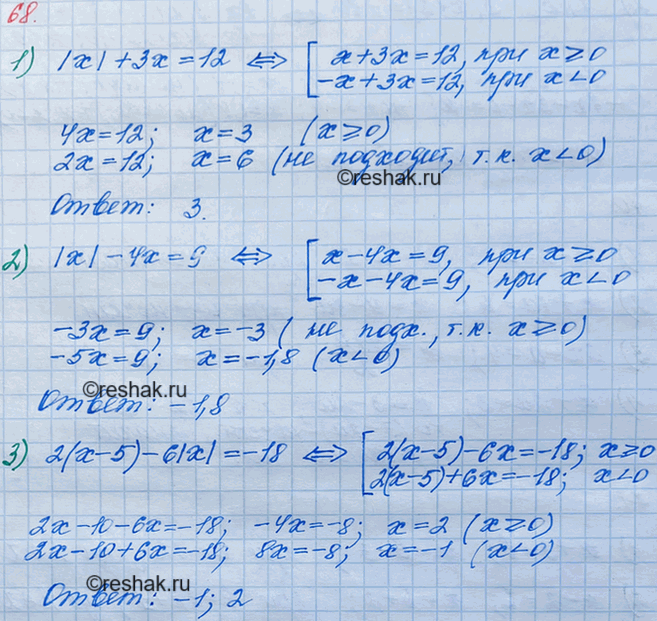 68.
1) |x| + 3x = 12 ⇔ [ x + 3x = 12, при x ≥ 0
-x + 3x = 12, при x < 0
4x = 12; x = 3 (x ≥ 0)
2x = 12; x = 6 (не подходит, т.к. x < 0)
©reshak.ru
Ответ: 3.
2) |x| - 4x = 9 ⇔ [ x - 4x = 9, при x ≥ 0
-x - 4x = 9, при x < 0
-3x = 9; x = -3 (не подх., т.к. x ≥ 0)
-5x = 9; x = -1,8 (x < 0)
©reshak.ru
Ответ: -1,8
3) 2(x-5) - 6|x| = -18 ⇔ [ 2(x-5) - 6x = -18; x ≥ 0
2(x-5) + 6x = -18; x < 0
2x - 10 - 6x = -18; -4x = -8; x = 2 (x ≥ 0)
2x - 10 + 6x = -18; 8x = -8; x = -1 (x < 0)
©reshak.ru
Ответ: -1; 2